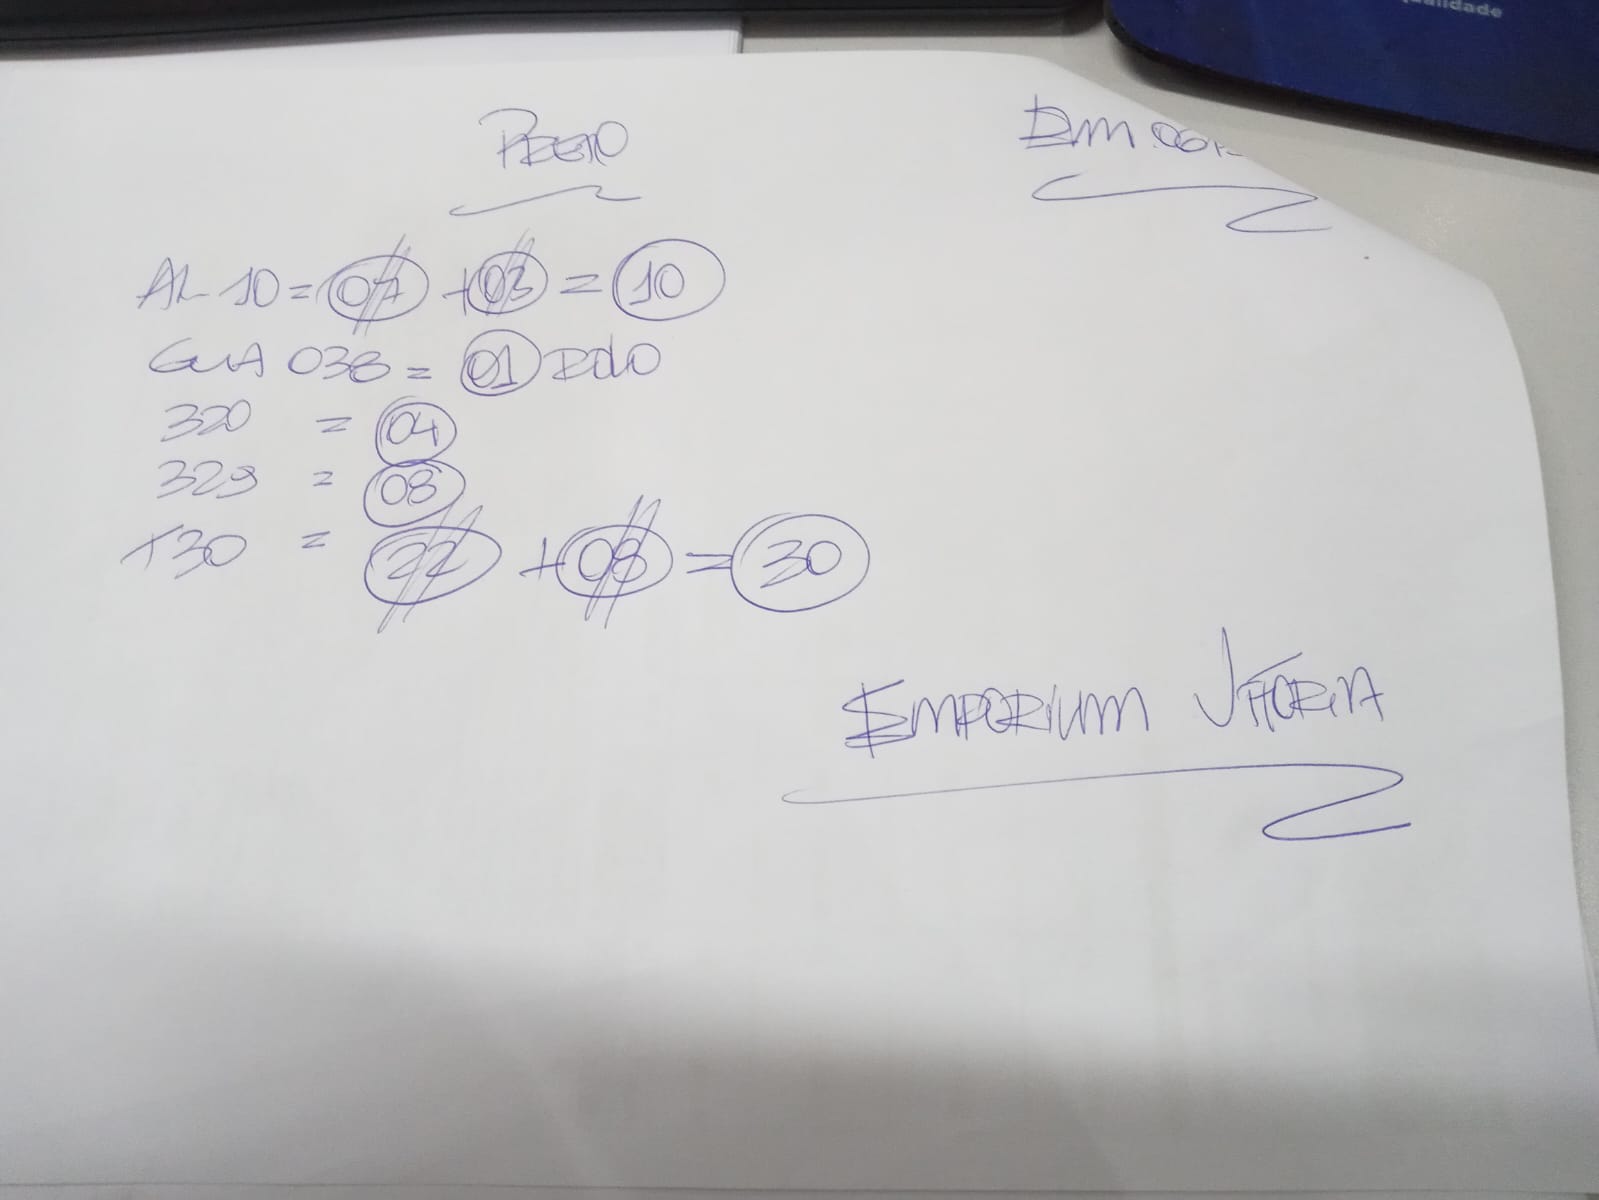 qualidade
PRETO
AL 10 = 07 + 03 = 10
GUA 038 = 01 ROLO
320 = 04
329 = 08
T30 = 22 + 08 = 30
EMPORIUM VITÓRIA